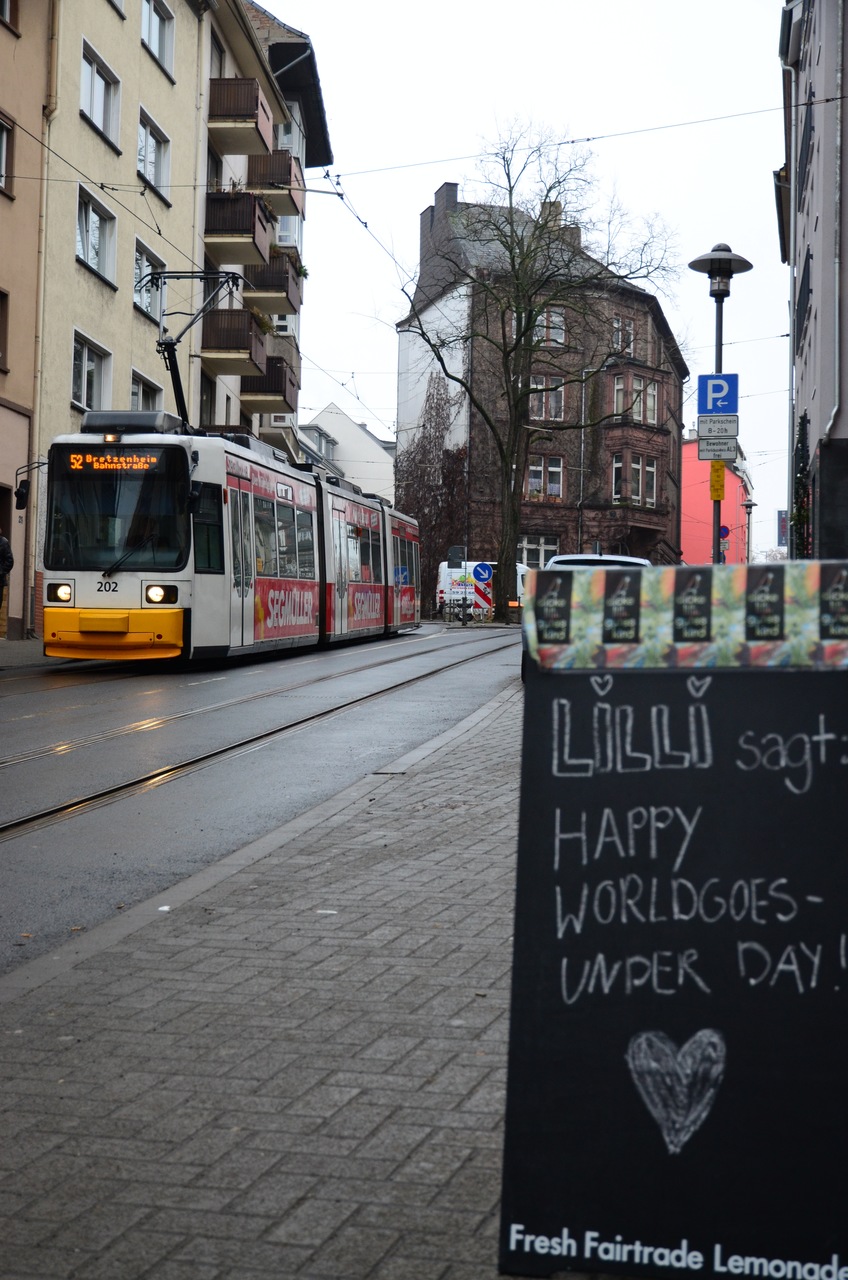 52 Bretzenheim
Bahnstraße
202
SEGMÜLLER
SEGMÜLLER
P
mit Parkschein
8-20h
Bewohner
frei
LiLLi sagt:
HAPPY
WORLDGOES-
UNDER DAY!
Fresh Fairtrade Lemonade